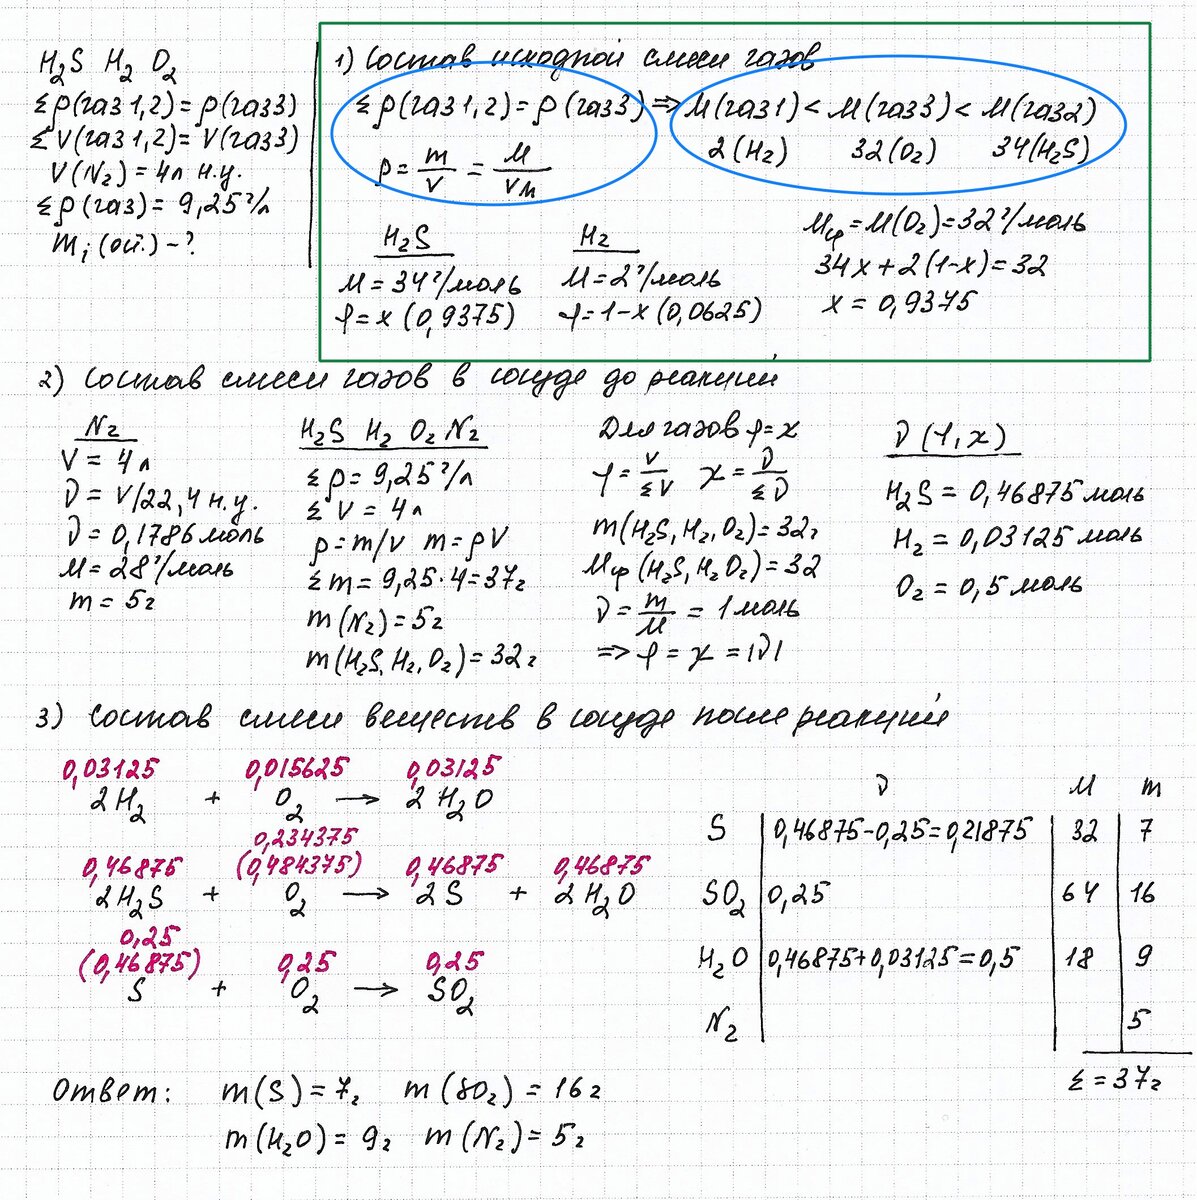 H₂S H₂ O₂
Σρ(газ 1,2) = ρ(газ3)
ΣV(газ 1,2) = V(газ3)
V(N₂) = 4л н.у.
Σρ(газ) = 9,25 г/л
mᵢ (ост.) - ?
1) Состав исходной смеси газов
Σρ(газ 1,2) = ρ(газ3) ⇒ M(газ1) < M(газ3) < M(газ2)
2(H₂) 32(O₂) 34(H₂S)
ρ = m/V = M/Vm
H₂S
M = 34 г/моль
φ = x (0,9375)
H₂
M = 2 г/моль
φ = 1-x (0,0625)
Mср = M(O₂) = 32 г/моль
34x + 2(1-x) = 32
x = 0,9375
2) Состав смеси газов в сосуде до реакций
N₂
V = 4л
ν = V/22,4 н.у.
ν = 0,1786 моль
M = 28 г/моль
m = 5г
H₂S H₂ O₂ N₂
Σρ = 9,25 г/л
ΣV = 4л
ρ = m/V m = ρV
Σm = 9,25·4 = 37г
m(N₂) = 5г
m(H₂S, H₂, O₂) = 32г
Для газов φ = χ
φ = V/ΣV χ = ν/Σν
m(H₂S, H₂, O₂) = 32г
Mср (H₂S, H₂ O₂) = 32
ν = m/M = 1 моль
⇒ φ = χ = |ν|
ν (φ, χ)
H₂S = 0,46875 моль
H₂ = 0,03125 моль
O₂ = 0,5 моль
3) Состав смеси веществ в сосуде после реакций
0,03125 0,015625 0,03125
2H₂ + O₂ → 2H₂O
0,234375
0,46875 (0,484375) 0,46875 0,46875
2H₂S + O₂ → 2S + 2H₂O
0,25
(0,46875) 0,25 0,25
S + O₂ → SO₂
ν M m
S 0,46875-0,25=0,21875 32 7
SO₂ 0,25 64 16
H₂O 0,46875+0,03125=0,5 18 9
N₂ 5
Σ = 37г
Ответ: m(S) = 7г m(SO₂) = 16г
m(H₂O) = 9г m(N₂) = 5г